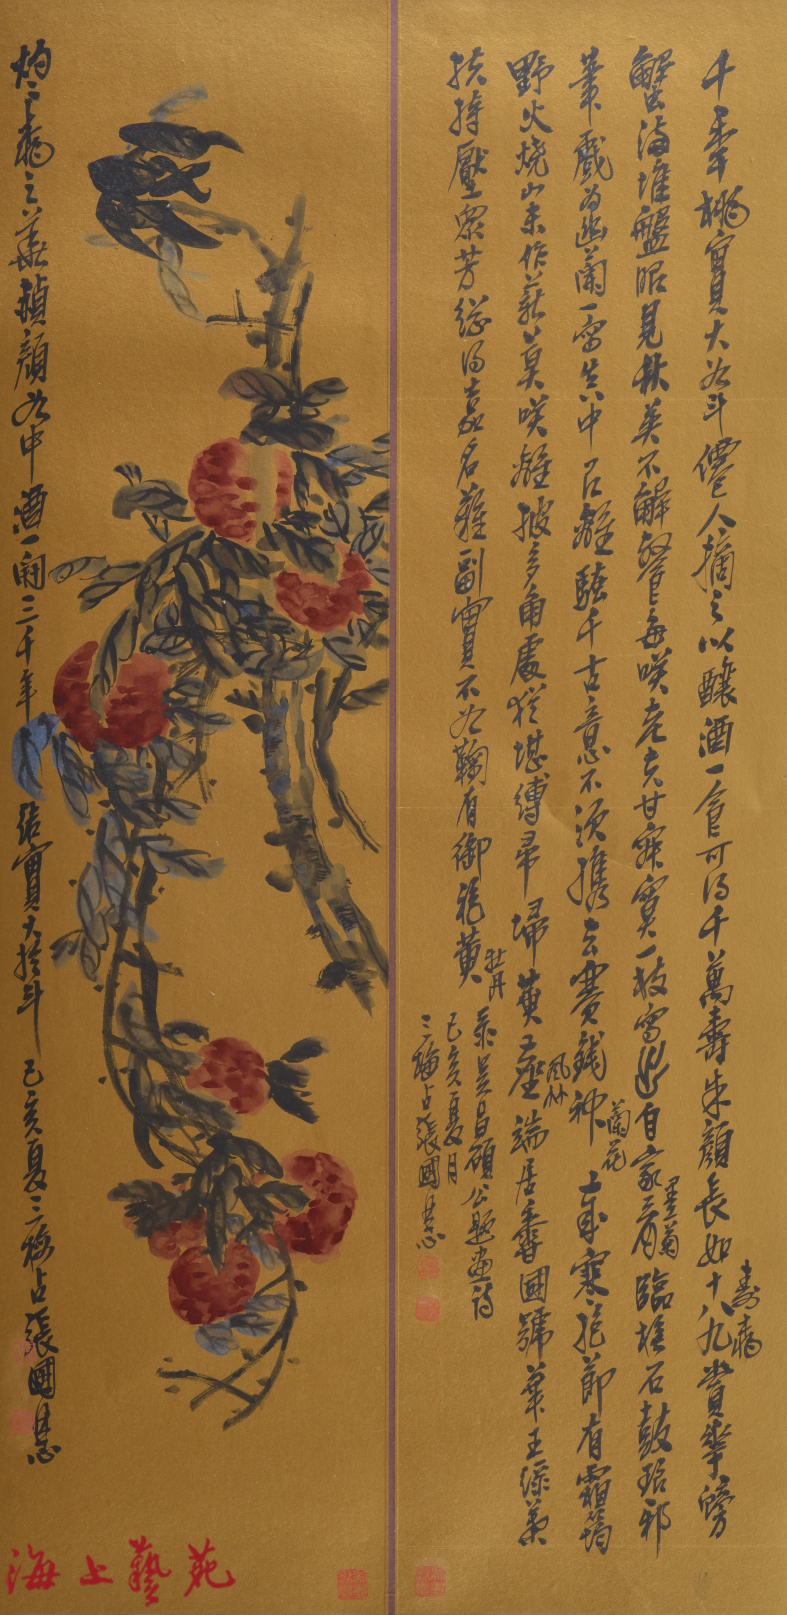 千年桃實大如斗僊人摘之以釀酒一食可得千萬壽朱顏長如十八九 壽桃 賞華螃
蟹滿堆盤眼見秋英不解餐每笑老夫甘寂寞一枝寫出自家看 墨菊 臨橅石鼓琅邪
筆戲為幽蘭一寫真中有離騷千古意不須攜去賽錢神 蘭花 歲寒抱節有霜筠
野火燒山未作薪莫笑離披多角處猶堪縛帚掃黃塵 風竹 端居香國號華王綠葉
扶持壓眾芳縱得嘉名難副實不如鞠有御袍黃 牡丹
录吳昌碩公題畫詩
己亥夏月
三梅占張國
灼灼桃之華頳顏如中酒一開三千年結實大於斗 己亥夏三梅占張國
海上藝苑